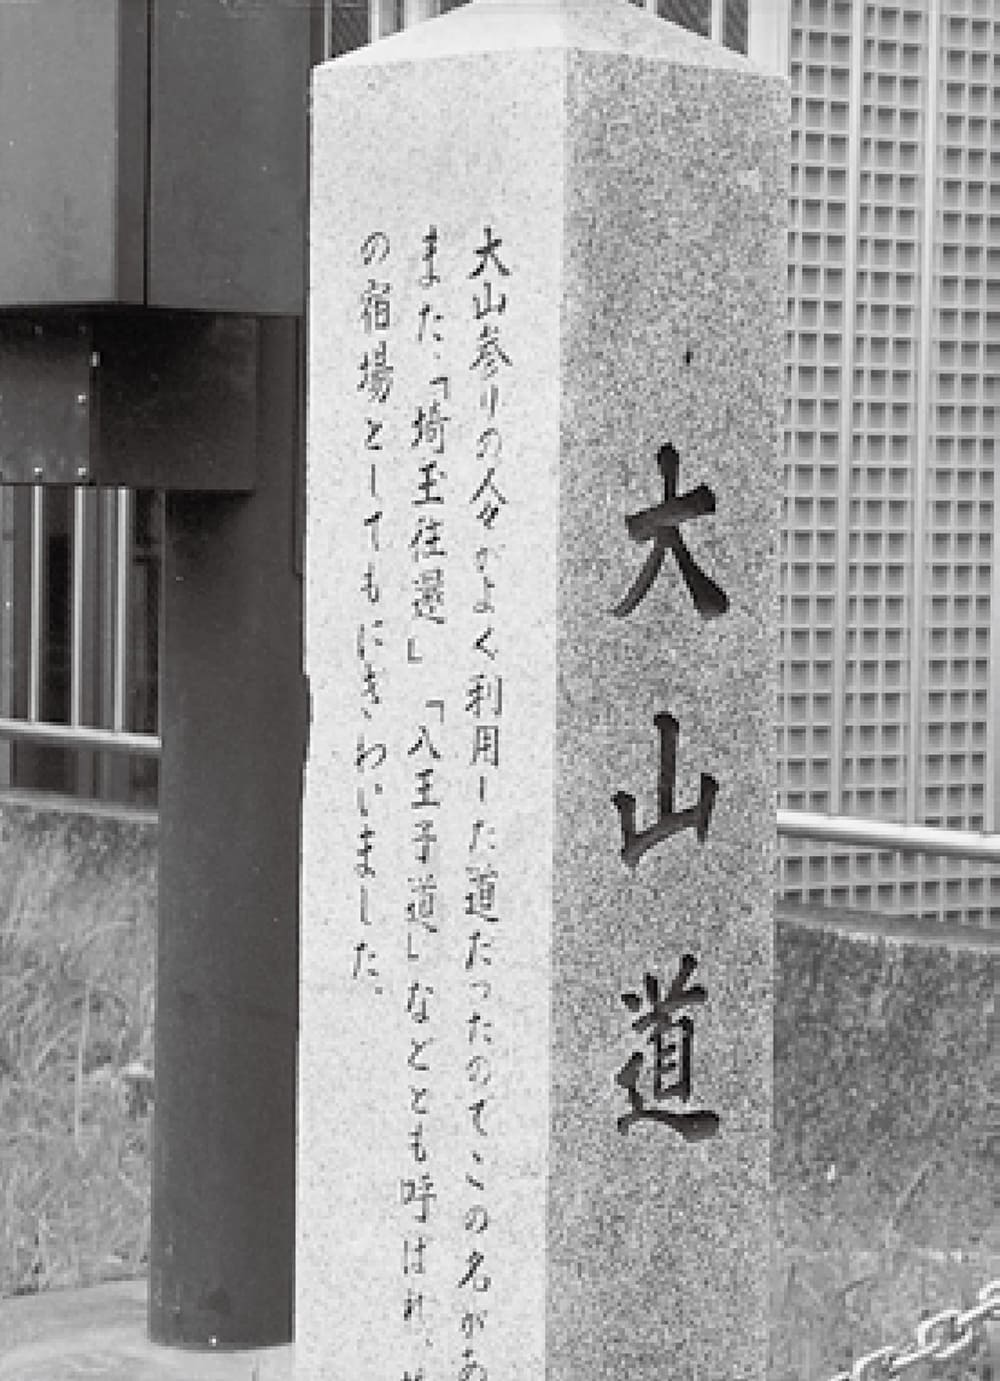 大山道
大山参りの人々がよく利用した道だったので、この名があ
また、「埼玉往還」「八王子道」などとも呼ばれ、
の宿場としてもにぎわいました。